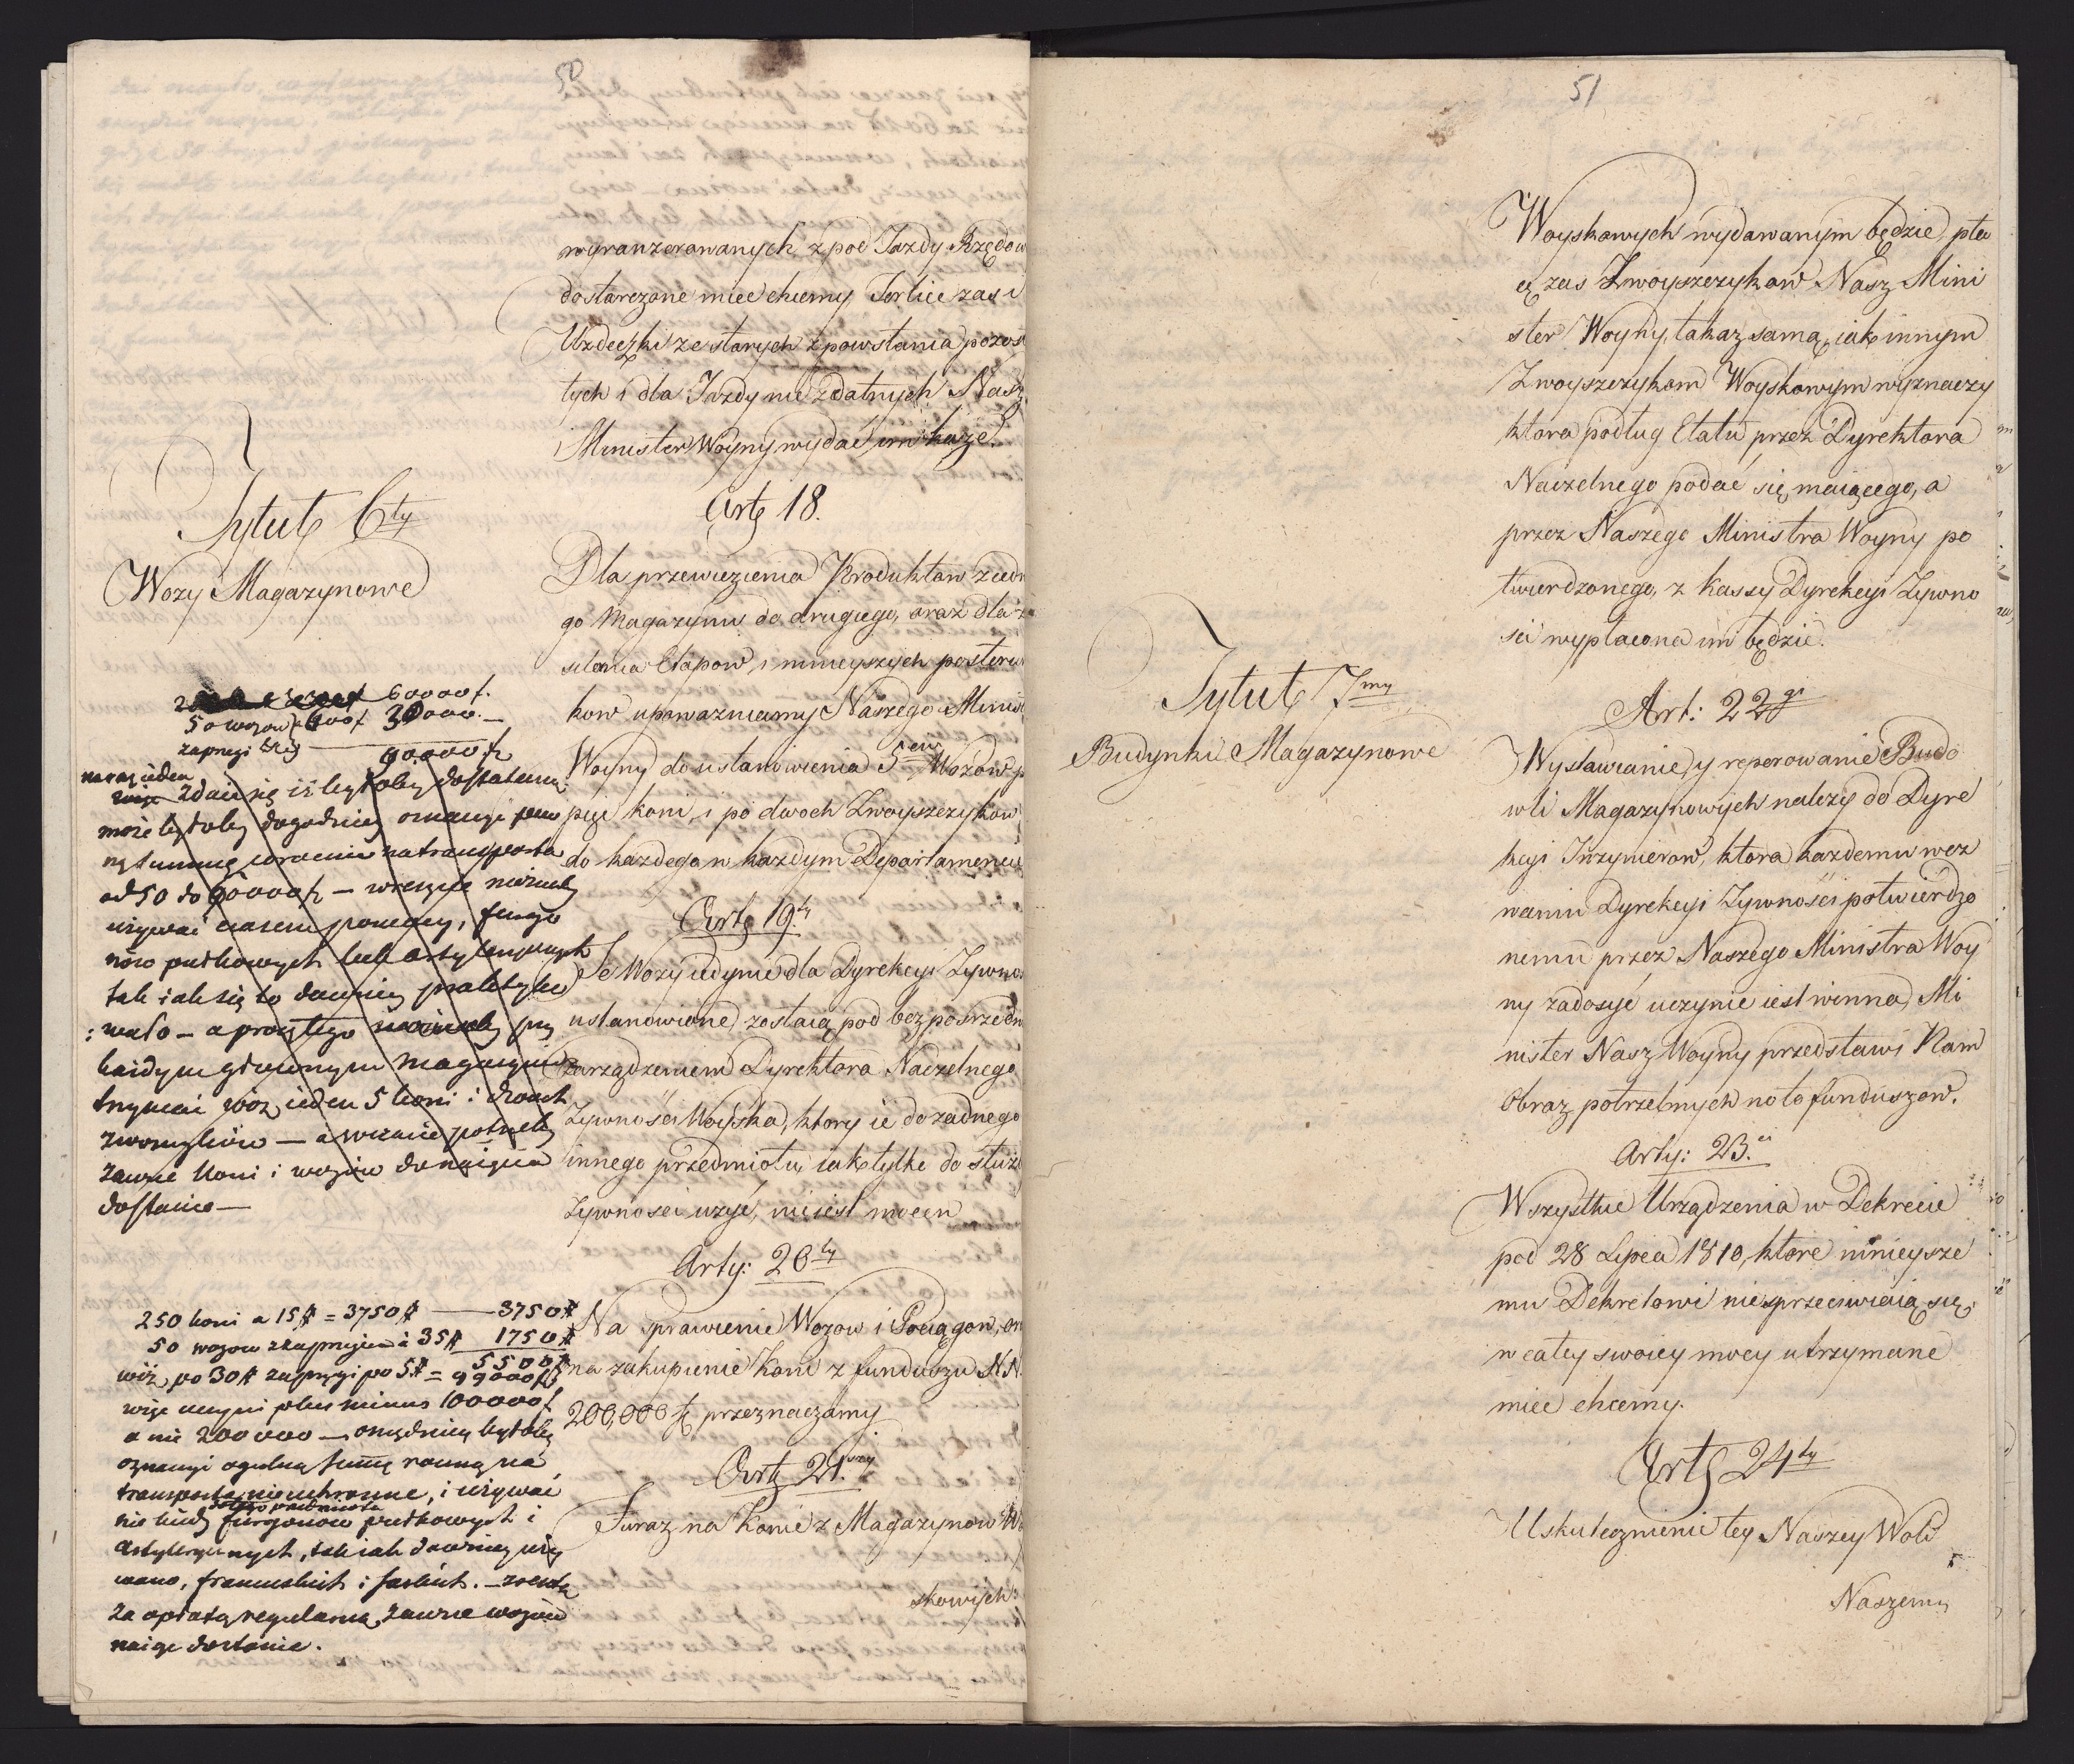 50
wyranzerowanych z pod Jazdy Rzędow
dostarczone miec chcemy Terlice zas i
Uzdeczki ze starych z powstania pozos
tych i dla Jazdy nie zdatnych Nasz
Minister Woyny wydać im każe.
Tytuł 6ty
Wozy Magazynowe
Arty 18.
Dla przewiezienia Produktow z iedn
go Magazynu do drugiego, oraz dla za
silenia Etapow i mnieyszych posterun
kow upowazniamy Naszego Minis
Woyny do ustanowienia 5ciu Wozow p
pięć koni, i po dwoch Zwoyszczykow
do kazdego w kazdym Departamencie
Arty 19ty
Te Wozy iedynie dla Dyrekcyi Zywnos
ustanowione zostaią pod bezposredn
zarządzeniem Dyrektora Naczelnego
Zywnosci Woyska, ktory ie do zadnego
innego przedmiotu iak tylko do służ
Zywnosci uzyć, nie iest mocen
Arty: 20ty
Na sprawienie Wozow i Pociągow, or
na zakupienie Koni z funduszu N.N.
200,000 f. przeznaczamy.
Arty 21szy
Furaz na Konie z Magazynow Wo
skowych
60000 f.
50 wozow a 600 f 30000.—
zaprzegi
90.000 f
na raz ieden
zdaie się iż byłoby dostateczną
może byłoby dogodniey oznaczyć pew
ną summę corocznie na transporta
od 50 do 60000 f — wreszcie możnaby
używać czasem pomocy, furgo
nów pułkowych lub artyleryinych
tak iak się to dawniey praktyko
wało — a prócz tego przy
każdym głównym magazynie
trzymać wóz ieden 5 koni i dwoch
zwoszczyków — a w razie potrzeby
zawsze koni i wozów do naięcia
dostanie —
250 koni a 15 # = 3750 # — 3750 #
50 wozow z zaprzęgiem à 35 # 1750 #
5500 #
wóz po 30 # zaprzęgi po 5 # = 99000 f
więc uczyni plus minus 100000 f
a nie 200000 — oszczędniey byłoby
oznaczyć ogulną summę roczną na
transporta nieuchronne, i używać
do tego przedmiotu
nie kiedy furgonów pułkowych i
artyleryinych, tak iak dawniey uży
wano, francuskich i saskich. — zresztą
za opłatą regularną zawsze wozów
naiąć dostanie.
51
Woyskowych wydawanym będzie, pła
cę zas Zwoyszczykow Nasz Mini
ster Woyny, takąz samą, iak innym
Zwoyszczykom Woyskowym wyznaczy
ktora podług Etatu przez Dyrektora
Naczelnego podać się maiącego, a
przez Naszego Ministra Woyny po
twierdzonego, z Kassy Dyrekcyi Zywno
sci wypłacona im będzie.
Tytuł 7my
Budynki Magazynowe
Art: 22gi
Wystawianie y reperowanie Budo
wli Magazynowych nalezy do Dyre
kcyi Inzynierow, ktora kazdemu wez
waniu Dyrekcyi Zywności potwierdzo
nemu przez Naszego Ministra Woy
ny zadosyć uczynic iest winna, Mi
nister Nasz Woyny przedstawi Nam
Obraz potrzebnych na to funduszow.
Arty: 23ci
Wszystkie Urządzenia w Dekrecie
pod 28 Lipca 1810, ktore ninieysze
mu Dekretowi niesprzeciwiaią się,
w całey swoiey mocy utrzymane
miec chcemy.
Arty 24ty
Uskutecznienie tey Naszey Woli
Naszemu